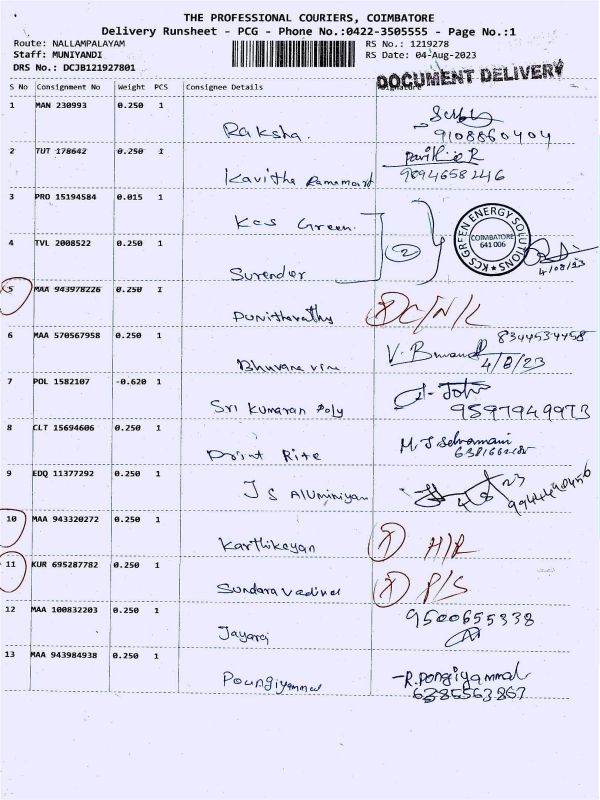 THE PROFESSIONAL COURIERS, COIMBATORE
Delivery Runsheet - PCG - Phone No.:0422-3505555 - Page No.:1
Route: NALLAMPALAYAM RS No.: 1219278
Staff: MUNIYANDI RS Date: 04-Aug-2023
DRS No.: DCJB121927801
DOCUMENT DELIVERY
S No Consignment No Weight PCS Consignee Details Signature
1 MAN 230993 0.250 1 Raksha. 9108860404
2 TUT 178642 0.250 1 Kavitha 9894658246
3 PRO 15194584 0.015 1 Kcs Green.
KCS GREEN ENERGY SOLUTIONS
COIMBATORE
641 006
4 TVL 2008522 0.250 1 Surender 2 4/08/23
5 MAA 943978226 0.250 1 Punithavathy C/N/L
6 MAA 570567958 0.250 1 8344534458 4/8/23
7 POL 1582107 -0.620 1 Sri Kumaran Poly Johi 9597949973
8 CLT 15694606 0.250 1 Print Rite M. J Selvamani
9 EDQ 11377292 0.250 1 J S Aluminiyam
10 MAA 943320272 0.250 1 Karthikeyan H/R
11 KUR 695287782 0.250 1 Sundara vadivel P/S
12 MAA 100832203 0.250 1 Jayaraj 9500655338
13 MAA 943984938 0.250 1 Poungiyammal R. Pongiyammal
6385563867